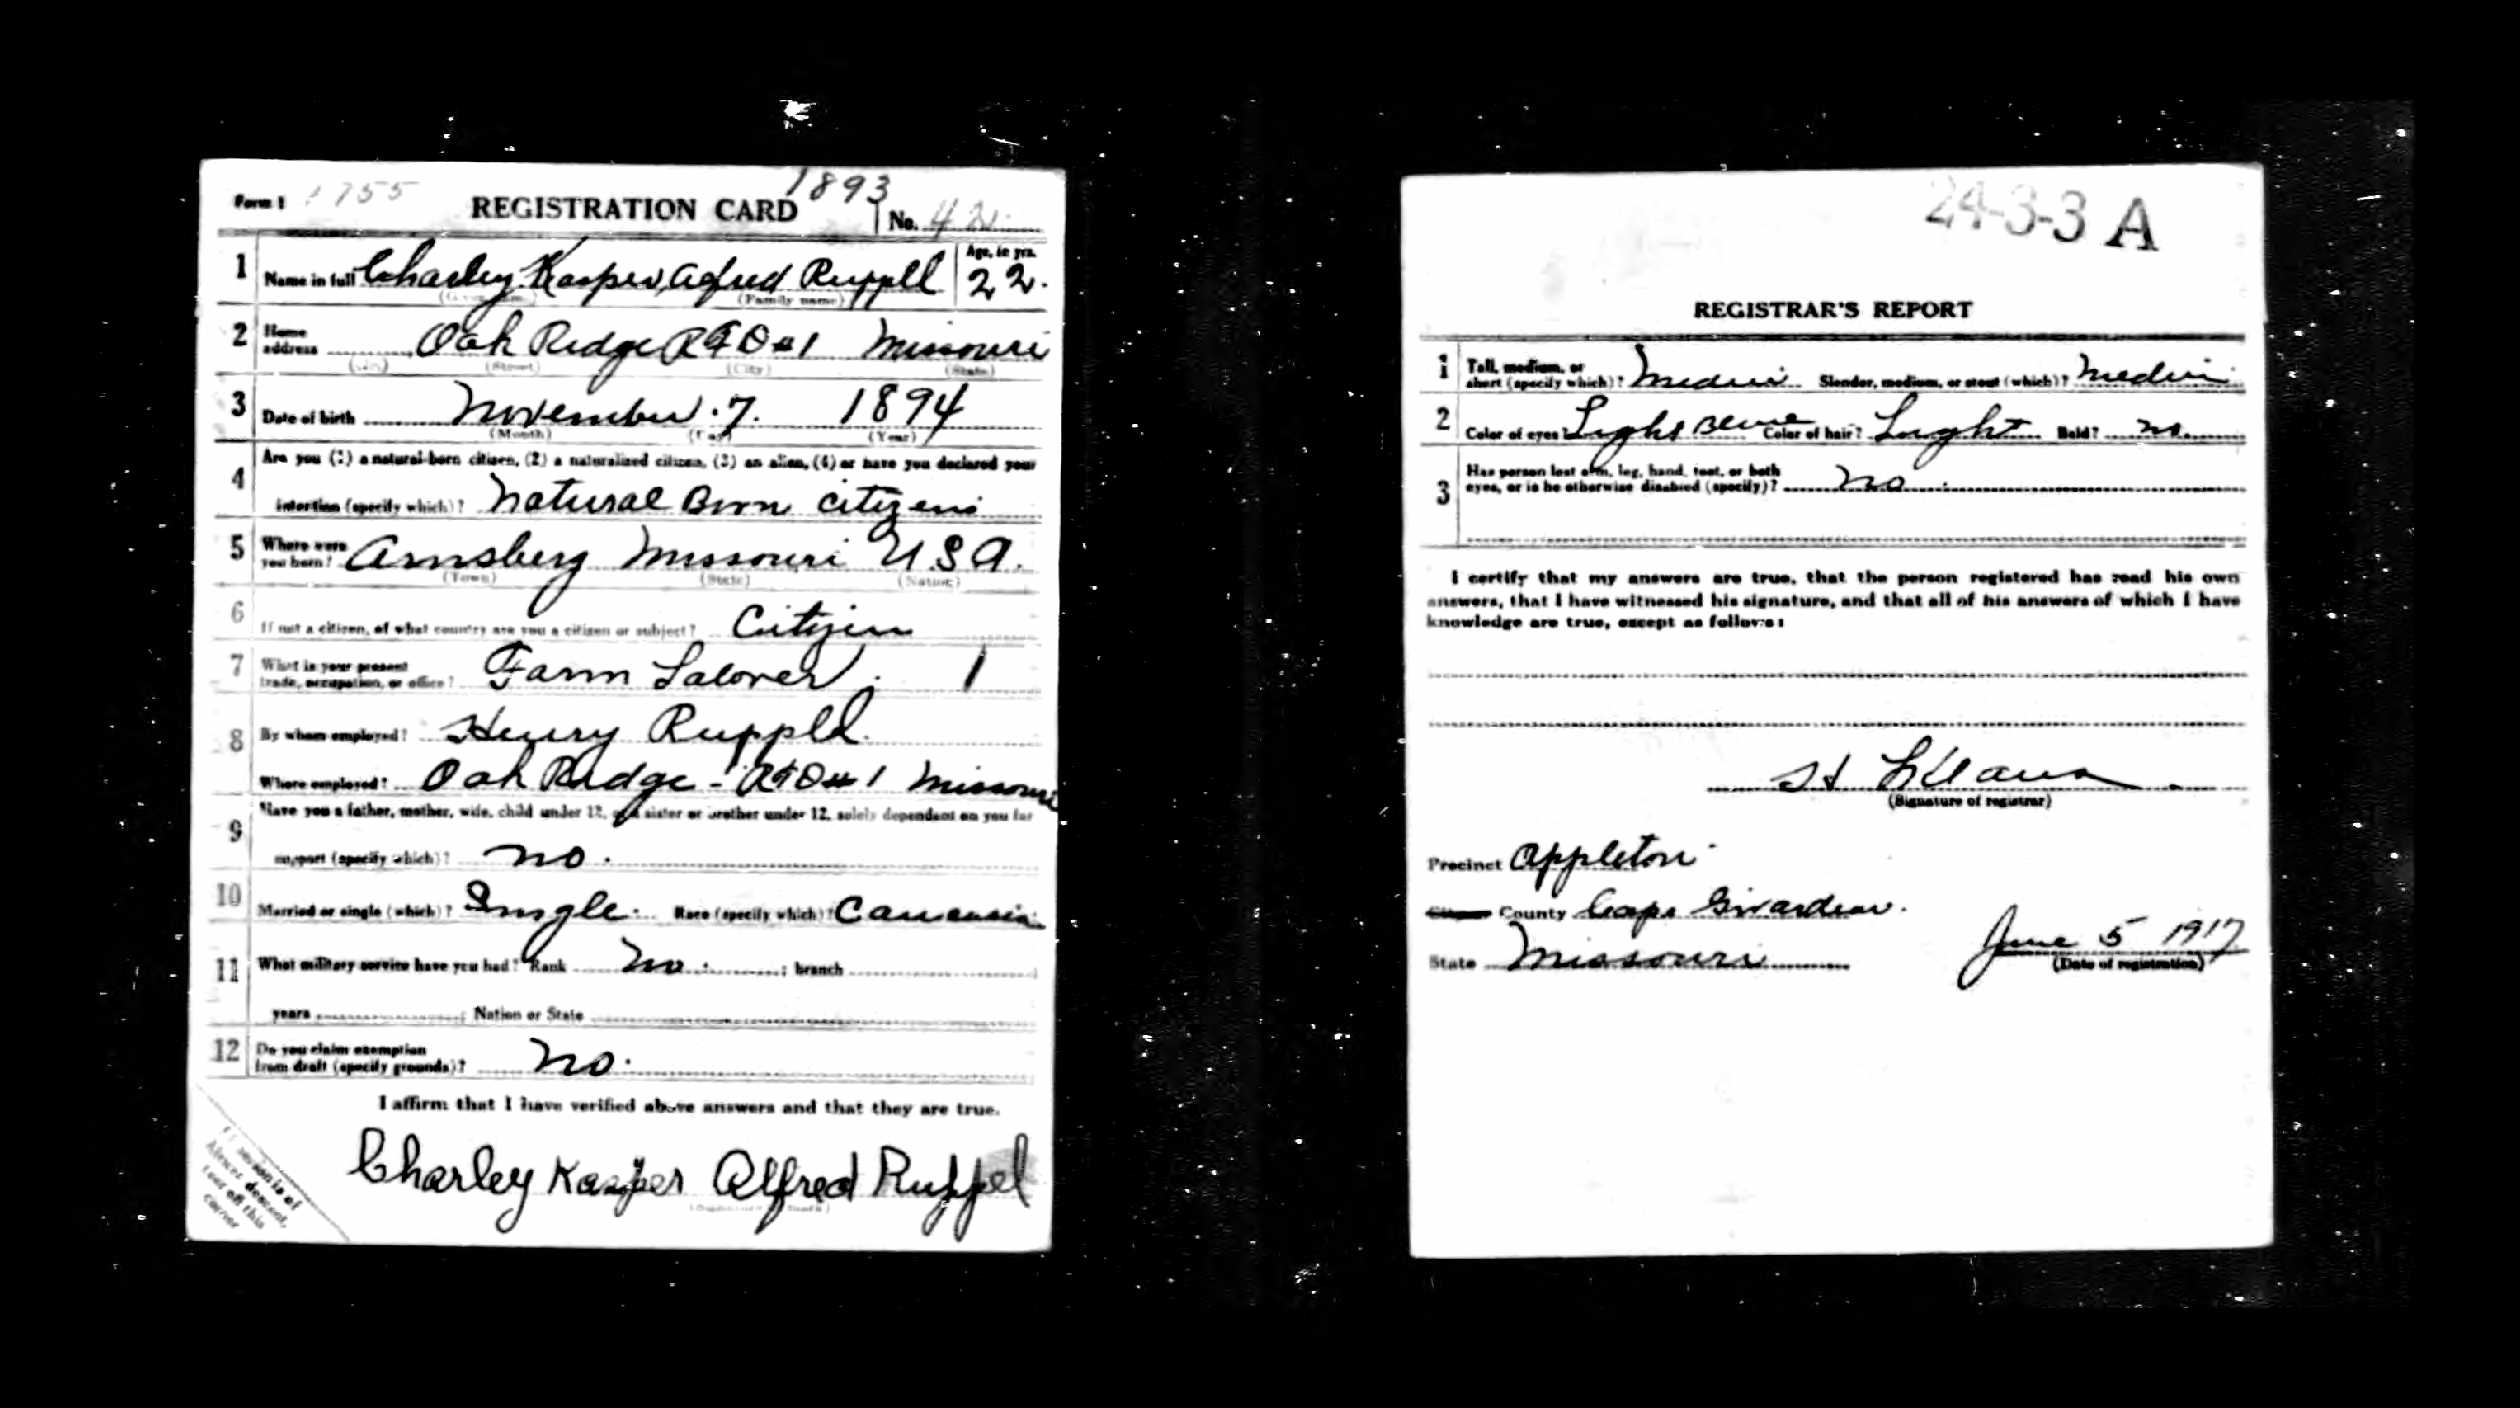 Form 1 1755 REGISTRATION CARD 1893 No. 42
1 Name in full Charley Kasper Alfred Ruppel Age, in yrs. 22.
(Given name) (Family name)
2 Home address Oak Ridge RFD #1 Missouri
(No.) (Street) (City) (State)
3 Date of birth November 7. 1894
(Month) (Day) (Year)
4 Are you (1) a natural-born citizen, (2) a naturalized citizen, (3) an alien, (4) or have you declared your
intention (specify which)? Natural Born Citizen
5 Where were you born? Arnsberg Missouri U S A.
(Town) (State) (Nation)
6 If not a citizen, of what country are you a citizen or subject? Citizen
7 What is your present trade, occupation, or office? Farm Laborer. 1
8 By whom employed? Henry Ruppel.
Where employed? Oak Ridge - RFD #1 Missouri
9 Have you a father, mother, wife, child under 12, or a sister or brother under 12, solely dependent on you for
support (specify which)? no.
10 Married or single (which)? Single. Race (specify which)? Caucasin
11 What military service have you had? Rank no. ; branch
years ; Nation or State
12 Do you claim exemption from draft (specify grounds)? No.
I affirm that I have verified above answers and that they are true.
Charley Kasper Alfred Ruppel
(Signature or mark)
If person is of
African descent,
tear off this
corner
24-3-3 A
REGISTRAR'S REPORT
1 Tall, medium, or short (specify which)? Medium Slender, medium, or stout (which)? Medium
2 Color of eyes? Light Blue Color of hair? Light Bald? No.
3 Has person lost arm, leg, hand, foot, or both
eyes, or is he otherwise disabled (specify)? No.
I certify that my answers are true, that the person registered has read his own
answers, that I have witnessed his signature, and that all of his answers of which I have
knowledge are true, except as follows:
(Signature of registrar)
Precinct Appleton
County Cape Girardeau.
State Missouri June 5 1917
(Date of registration)